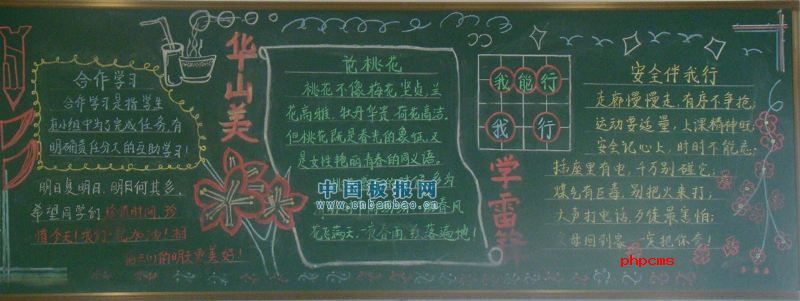 合作学习
合作学习是指学生
在小组中为了完成任务,有
明确责任分工的互助学习!
明日复明日,明日何其多。
希望同学们珍惜时间,珍
惜今天!我们一起加油!
们的明天更美好!
华山美
说桃花
桃花不像梅花坚贞,兰
花高雅,牡丹华贵,荷花高洁,
但桃花既是春光的象征,又
是女性艳丽青春的同义语。
中国板报网
www.cnbanbao.cn
春风
花飞满天
落遍地!
我能行
我 行
学雷锋
安全伴我行
走廊慢慢走,有序不争抢;
运动要适量,上课精神旺;
安全记心上,时时不能忘;
插座里有电,千万别碰它;
煤气有巨毒,别把火来打;
大声打电话,歹徒最害怕;
父母回到家,一定把你夸!
phpcms